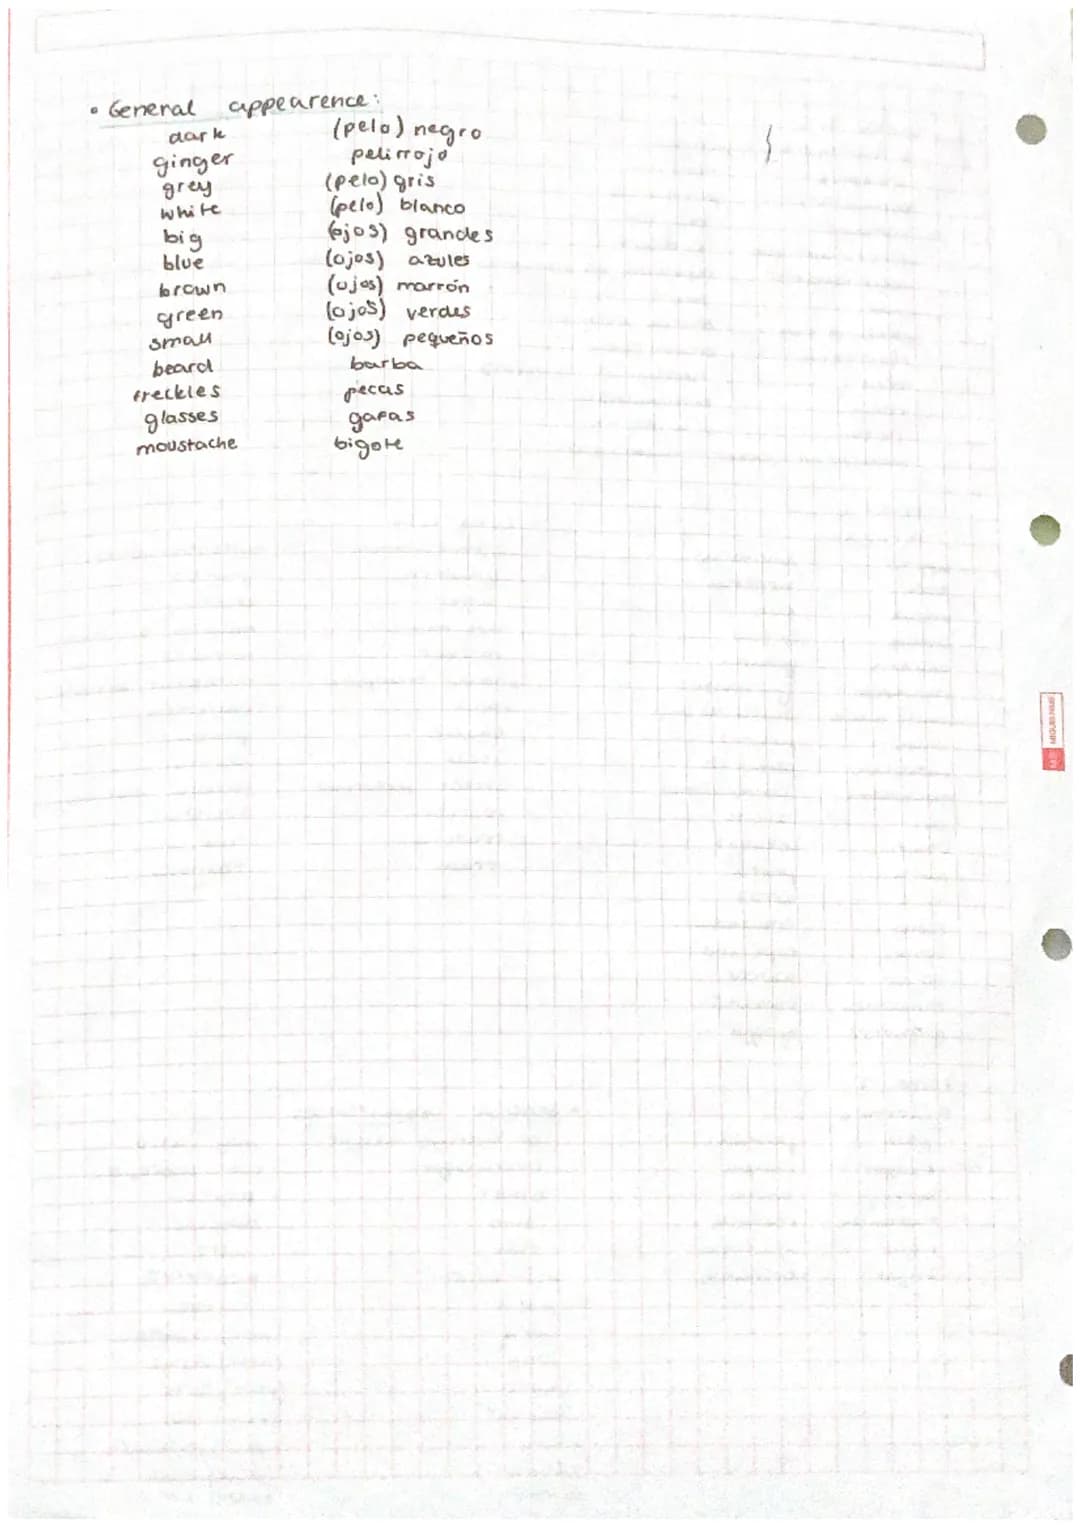 • General appearence:
dark (pelo) negro
ginger pelirrojo
grey (pelo) gris
white (pelo) blanco
big (ojos) grandes
blue (ojos) azules
brown (ojos) marrón
green (ojos) verdes
small (ojos) pequeños
beard barba
freckles pecas
glasses gafas
moustache bigote
MIQUELRIUS